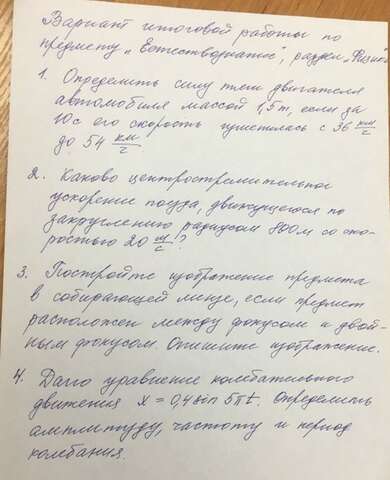 Вариант итоговой работы по
предмету „Естествознание", раздел „Физика
1. Определить силу тяги двигателя
автомобиля массой 1,5т, если за
10с его скорость изменилась с 36 км/ч
до 54 км/ч
2. Каково центростремительное
ускорение поезда, движущегося по
закруглению радиусом 800м со ско-
ростью 20 м/с?
3. Постройте изображение предмета
в собирающей линзе, если предмет
расположен между фокусом и двой-
ным фокусом. Опишите изображение.
4. Дано уравнение колебательного
движения x = 0,4 sin 5πt. Определить
амплитуду, частоту и период
колебания.